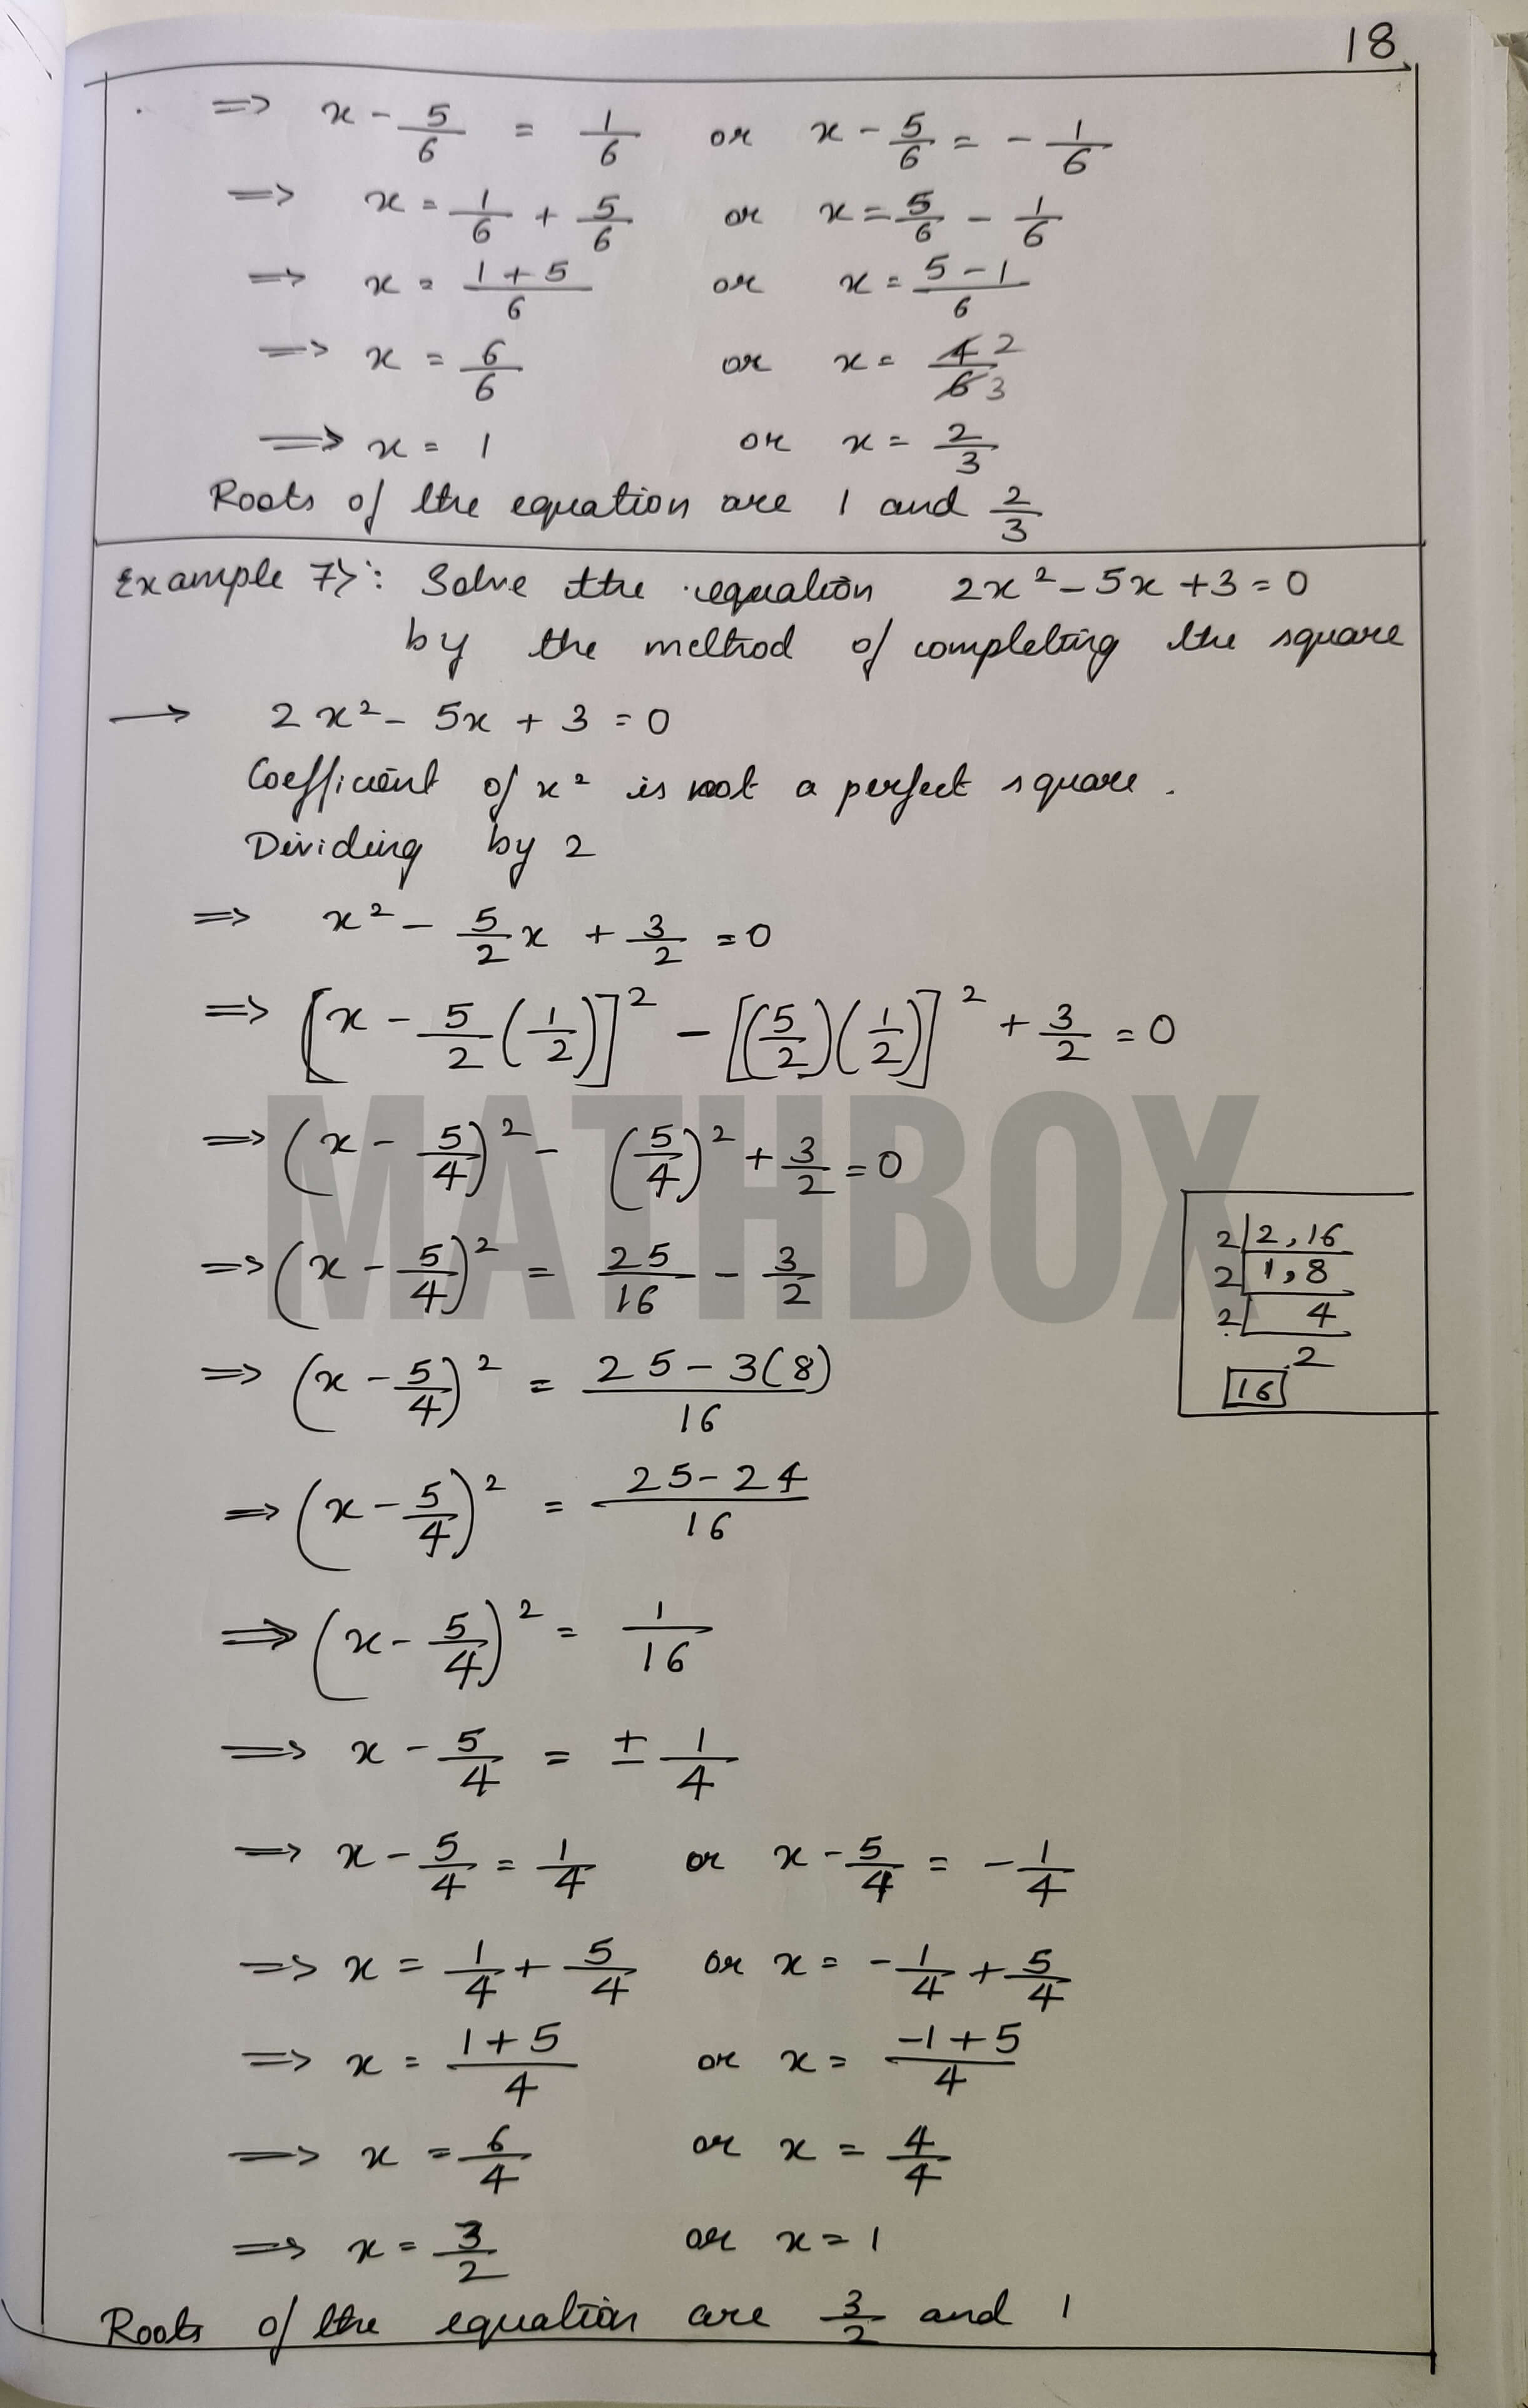 18
=> x - 5/6 = 1/6 or x - 5/6 = - 1/6
=> x = 1/6 + 5/6 or x = 5/6 - 1/6
=> x = (1+5)/6 or x = (5-1)/6
=> x = 6/6 or x = 4/6 2/3
=> x = 1 or x = 2/3
Roots of the equation are 1 and 2/3
Example 7>: Solve the equation 2x² - 5x + 3 = 0
by the method of completing the square
→ 2x² - 5x + 3 = 0
Coefficient of x² is not a perfect square.
Dividing by 2
=> x² - 5/2 x + 3/2 = 0
=> [x - 5/2 (1/2)]² - [(5/2)(1/2)]² + 3/2 = 0
=> (x - 5/4)² - (5/4)² + 3/2 = 0
MATHBOX
=> (x - 5/4)² = 25/16 - 3/2
=> (x - 5/4)² = (25 - 3(8))/16
=> (x - 5/4)² = (25 - 24)/16
=> (x - 5/4)² = 1/16
=> x - 5/4 = ± 1/4
=> x - 5/4 = 1/4 or x - 5/4 = - 1/4
=> x = 1/4 + 5/4 or x = - 1/4 + 5/4
=> x = (1+5)/4 or x = (-1+5)/4
=> x = 6/4 or x = 4/4
=> x = 3/2 or x = 1
Roots of the equation are 3/2 and 1
2|2, 16
2|1, 8
2| 4
2
16